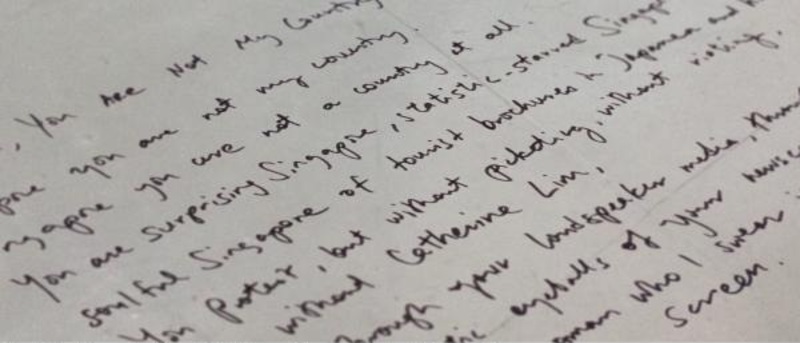 , You Are Not My Country
you are not my country.
you are not a country at all.
You are surprising Singapore, statistics-starved
soulful Singapore of tourist brochures in Japanese and
You protest, but without picketing, without rioting.
without Catherine Lim,
through your loudspeaker media,
eyeballs of your
who I swear
screen.